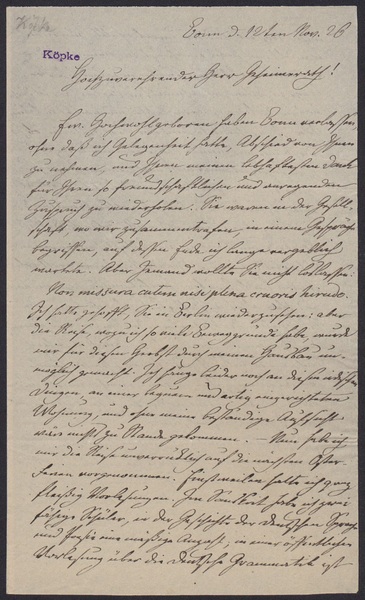 Köpke
Köpke
Bonn d. 12ten Nov. 26
Hochzuverehrender Herr Geheimerath!
Ew. Hochwohlgeboren haben Bonn verlassen
ohne daß ich Gelegenheit hatte, Abschied von Ihnen
zu nehmen, und Ihnen meinen lebhaftesten Dank
für Ihren so freundschaftlichen und anregenden
Zuspruch zu wiederholen. Sie waren in der Gesell-
schaft, wo wir zusammentrafen, in einem Gespräch
begriffen, auf dessen Ende ich lange vergeblich
wartete. Aber Jemand wollte Sie nicht loslassen:
Non missura cutem nisi plena cruoris hirudo.
Ich hatte gehofft, Sie in Berlin wiederzusehen: aber
die Reise, wozu ich so viele Beweggründe habe, wurde
mir für diesen Herbst durch meinen Hausbau un-
möglich gemacht. Ich hänge leider noch an diesen irdischen
Dingen, an einer bequem und artig eingerichteten
Wohnung, und ohne meine beständige Aufsicht
wäre nichts zu Stande gekommen. – Nun habe ich
mir die Reise unverrücklich auf die nächsten Oster-
ferien vorgenommen. Einstweilen halte ich ganz
fleißig Vorlesungen. Im Sanskrit habe ich zwei
fähige Schüler, in der Geschichte der deutschen Sprache
und Poesie eine mäßige Anzahl, in einer öffentlichen
Vorlesung über die deutsche Grammatik ist